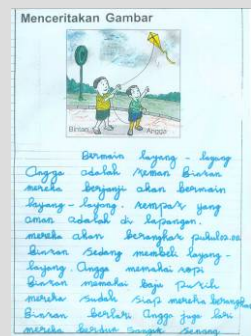 Menceritakan Gambar
Bintan Angga
Bermain layang - layang
Angga adalah teman Bintan
mereka berjanji akan bermain
layang - layang. tempat yang
aman adalah di lapangan.
mereka akan berangkat pukul
Bintan sedang membeli layang -
layang. Angga memakai topi
Bintan memakai baju Putih
mereka sudah siap mereka berangkat
Bintan berlari Angga juga lari
mereka berdua sangat senang